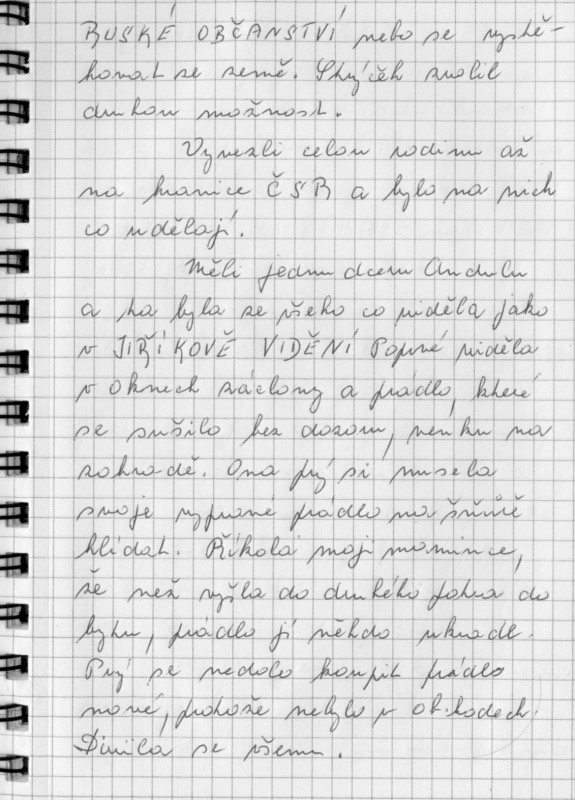 RUSKÉ OBČANSTVÍ nebo se vystě-
hovat ze země. Strýček zvolil
druhou možnost.
Vyvezli celou rodinu až
na hranice ČSR a bylo na nich
co udělají.
Měli jednu dceru Andulu
a ta byla ze všeho co viděla jako
v JIŘÍKOVĚ VIDĚNÍ Poprvé viděla
v oknech záclony a prádlo, které
se sušilo bez dozoru, venku na
zahradě. Ona prý si musela
svoje vyprané prádlo na šňůře
hlídat. Říkala mojí mamince,
že než vyšla do druhého patra do
bytu, prádlo jí někdo ukradl.
Prý se nedalo koupit prádlo
nové, protože nebylo v obchodech.
Divila se všemu.